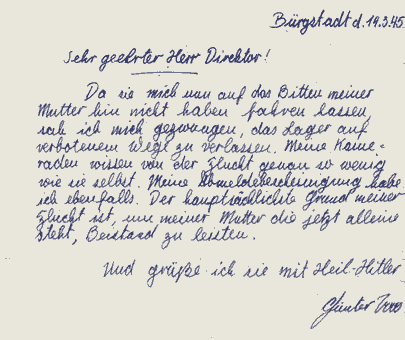 Bürgstadt d. 19.3.45
Sehr geehrter Herr Direktor!
Da sie mich nun auf das Bitten meiner
Mutter hin nicht haben fahren lassen,
sah ich mich gezwungen, das Lager auf
verbotenem Wege zu verlassen. Meine Kame-
raden wissen von der Flucht genau so wenig
wie sie selbst. Meine Abmeldebescheinigung habe
ich ebenfalls. Der hauptsächlichste Grund meiner
Flucht ist, um meiner Mutter die jetzt alleine
steht, Beistand zu leisten.
Und grüße ich sie mit Heil-Hitler
Günter